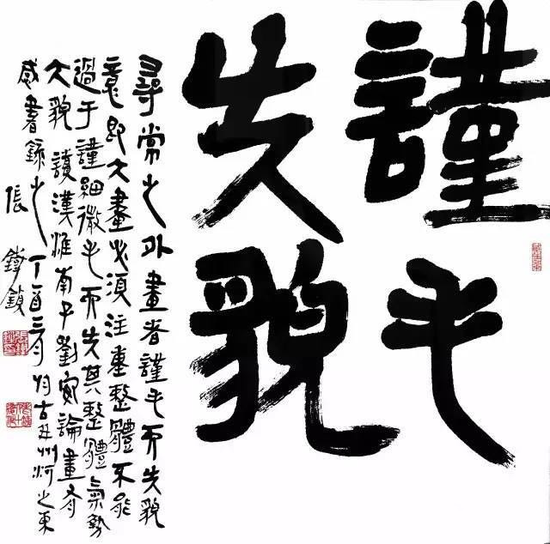 謹毛
失貌
尋常之外畫者謹毛而失貌
意即大畫必須注重整體不能
過于謹細微毛而失其整體氣勢
大貌讀漢淮南子劉安論畫有
感書錄之丁酉三月古并州河之東
張鐵鎖